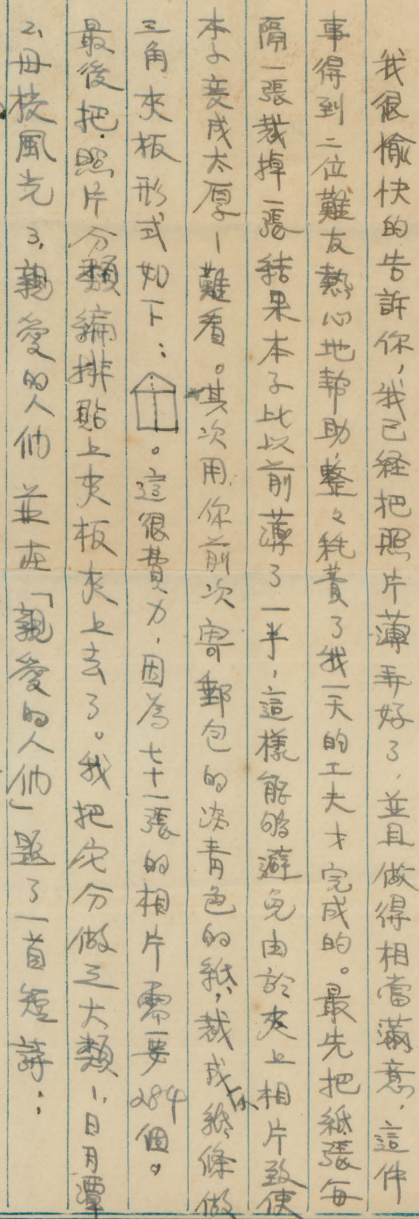 我很愉快的告訴你,我已経把照片薄弄好了,並且做得相當滿意,這件
事得到二位難友熱心地幇助,整々耗費了我一天的工夫才完成的。最先把紙張每
隔一張裁掉一張結果本子比以前薄了一半,這樣能够避免由於夾上相片致使
本子変成太厚—難看。其次用你前次寄郵包的淡青色的紙,裁成紙條做
三角夾板形式如下:。這很費力,因為七十一張的相片需要284個。
最後把照片分類編排貼上夾板夾上去了。我把它分做三大類1,日月潭
2,母校風光3,親愛的人們 並在「親愛的人們」題了一首短詩: